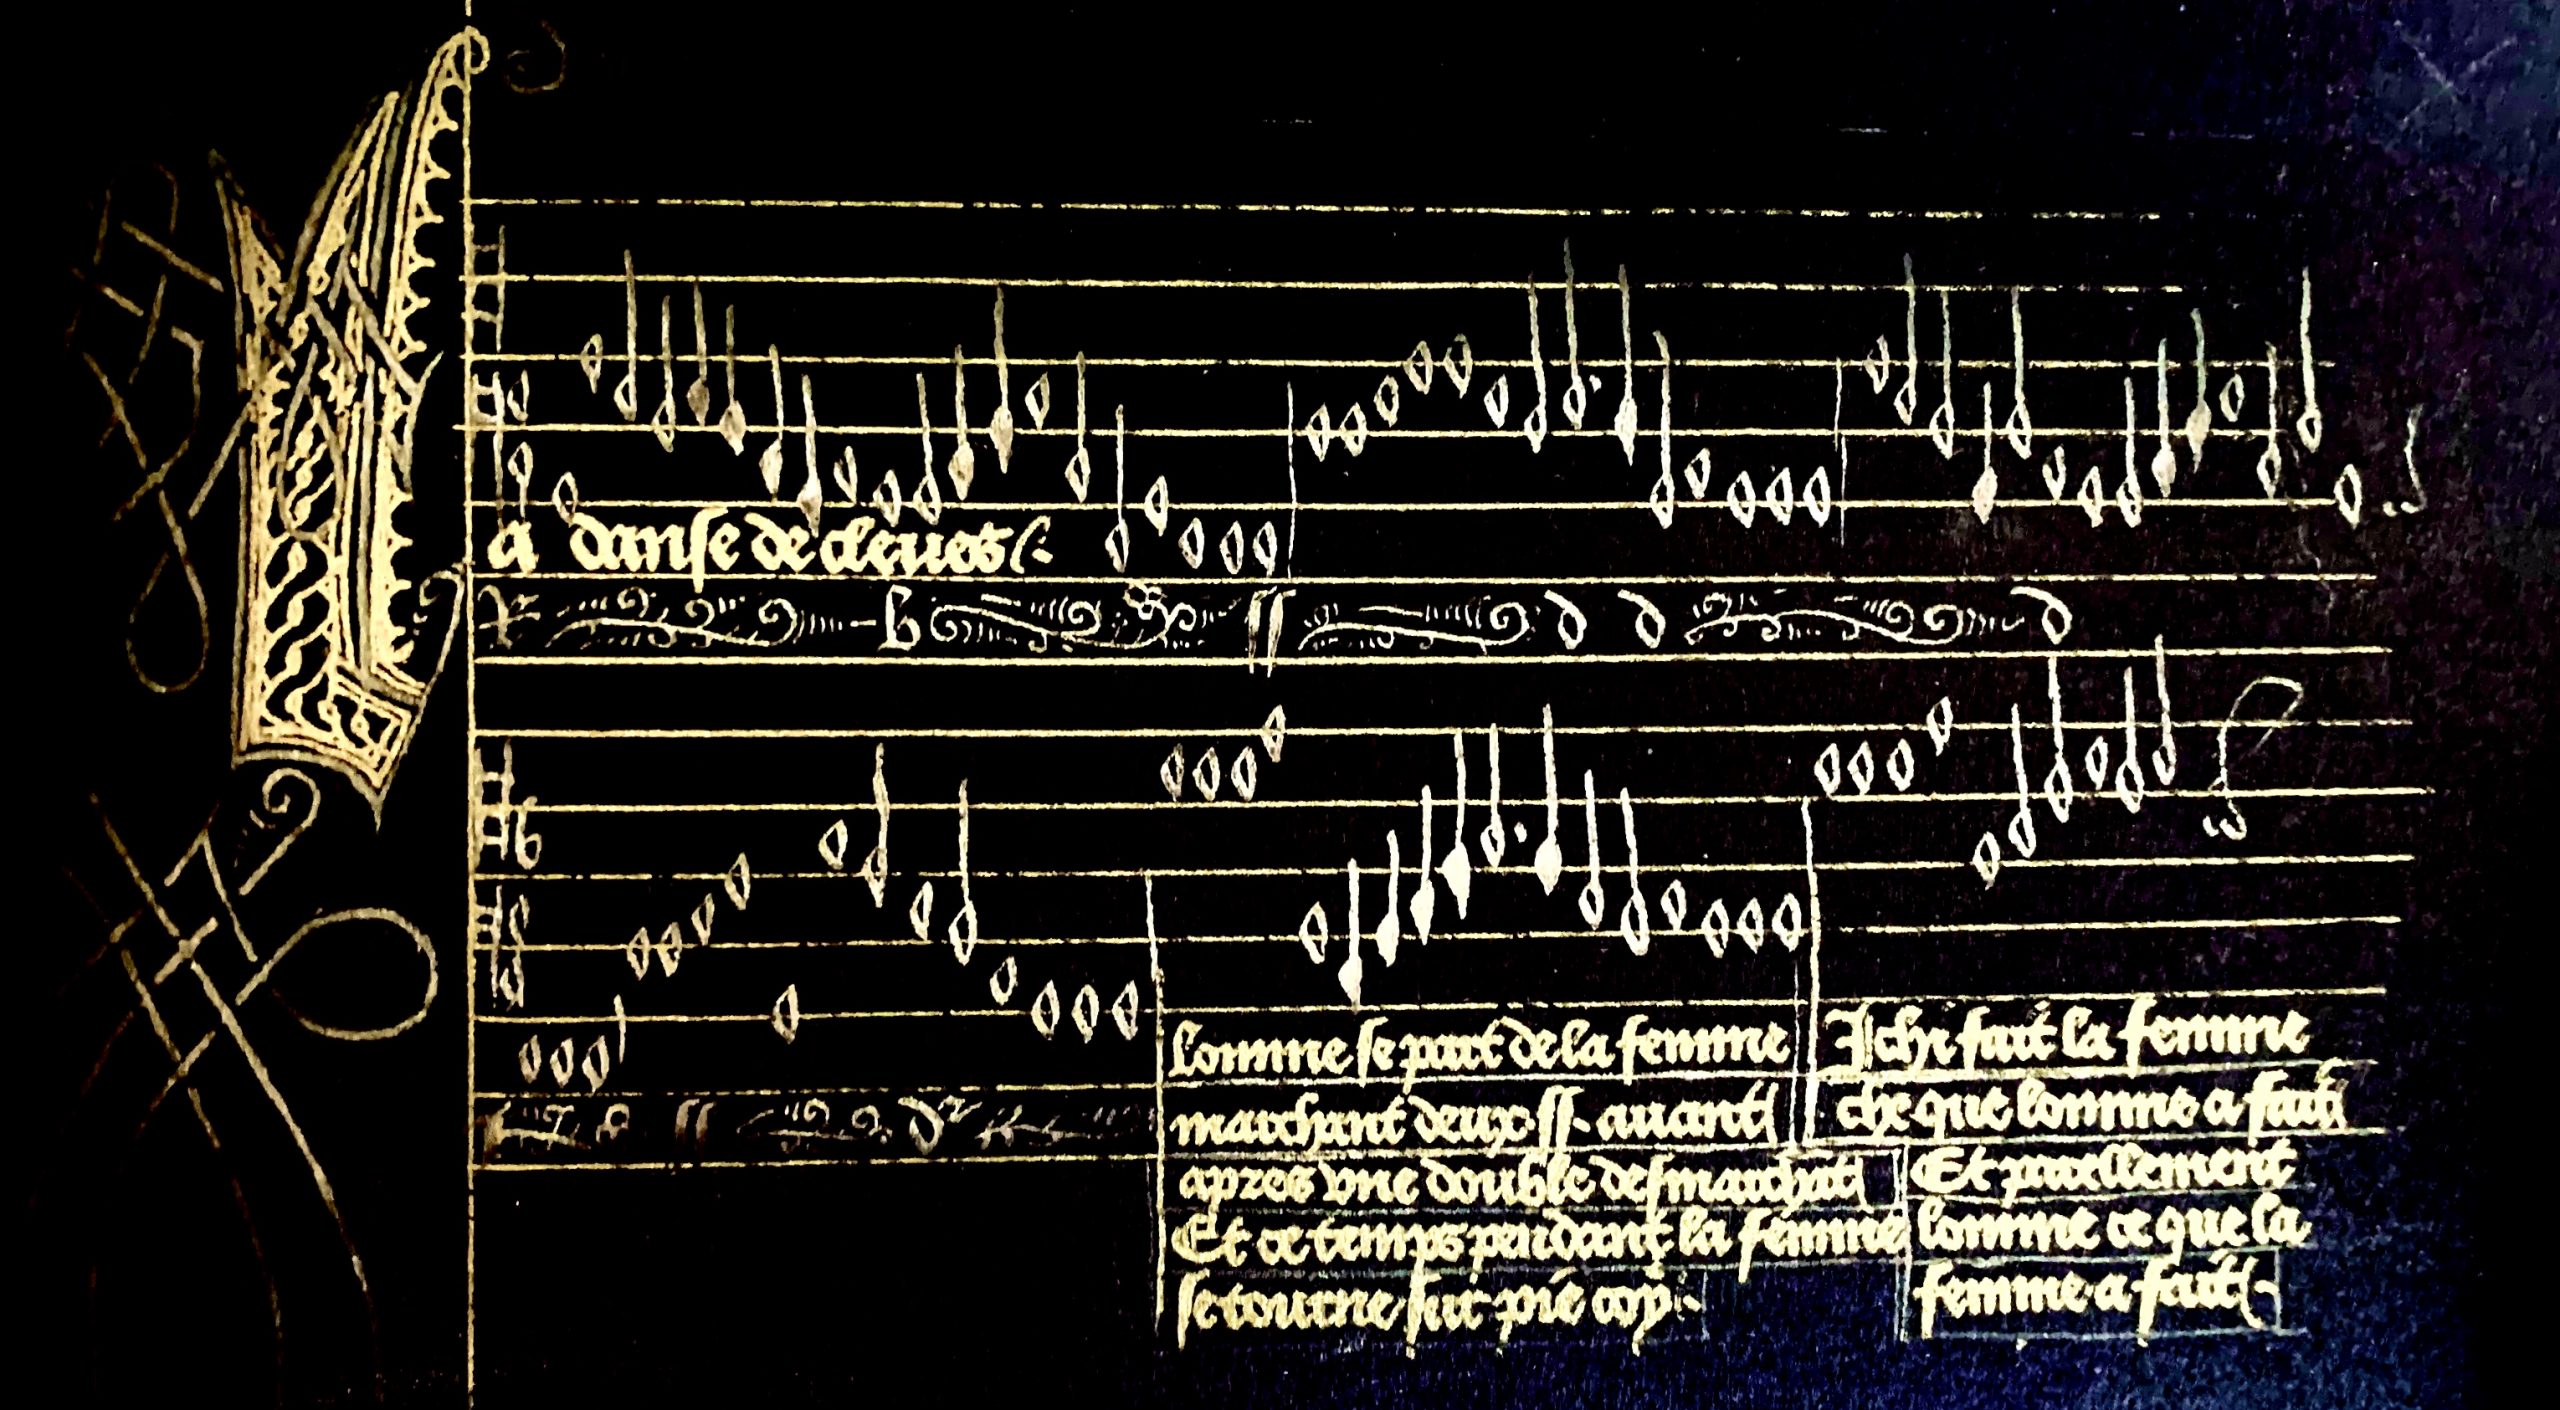 La danse de cleues
R b ſſ d d d
ſſ dr
Lomme se part de la femme
marchant deux ſſ auant
apres vne double desmarchat
Et ce temps pendant la femme
se tourne sur pie coy
Ichi fait la femme
che que lomme a fait
Et parellement
lomme ce que la
femme a fait